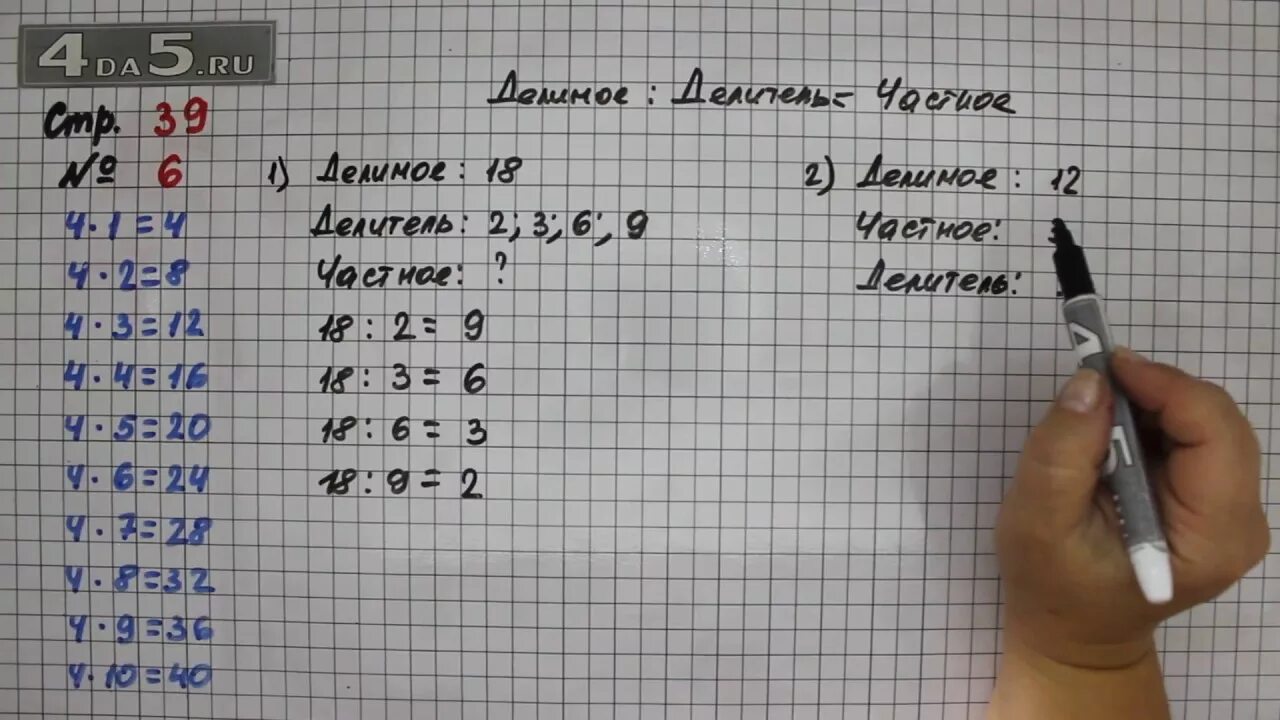 4DA5.RU
Делимое : Делитель = Частное
Стр. 39
№ 6
4 · 1 = 4
4 · 2 = 8
4 · 3 = 12
4 · 4 = 16
4 · 5 = 20
4 · 6 = 24
4 · 7 = 28
4 · 8 = 32
4 · 9 = 36
4 · 10 = 40
1) Делимое : 18
Делитель : 2; 3; 6; 9
Частное : ?
18 : 2 = 9
18 : 3 = 6
18 : 6 = 3
18 : 9 = 2
2) Делимое : 12
Частное :
Делитель :